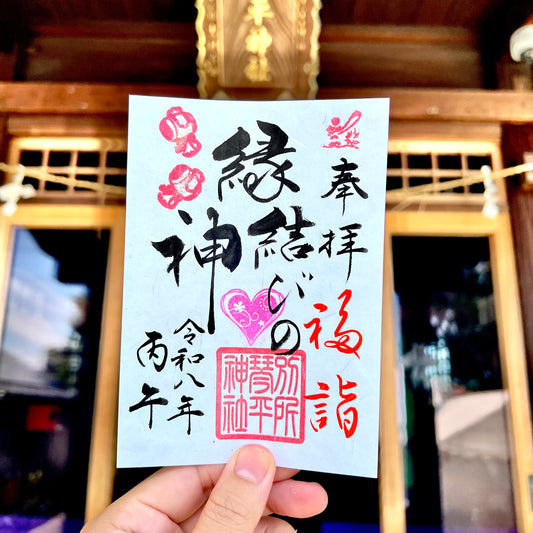 平神社
奉拝
福詣
縁結びの
神
別所
琴平
神社
令和八年
丙午